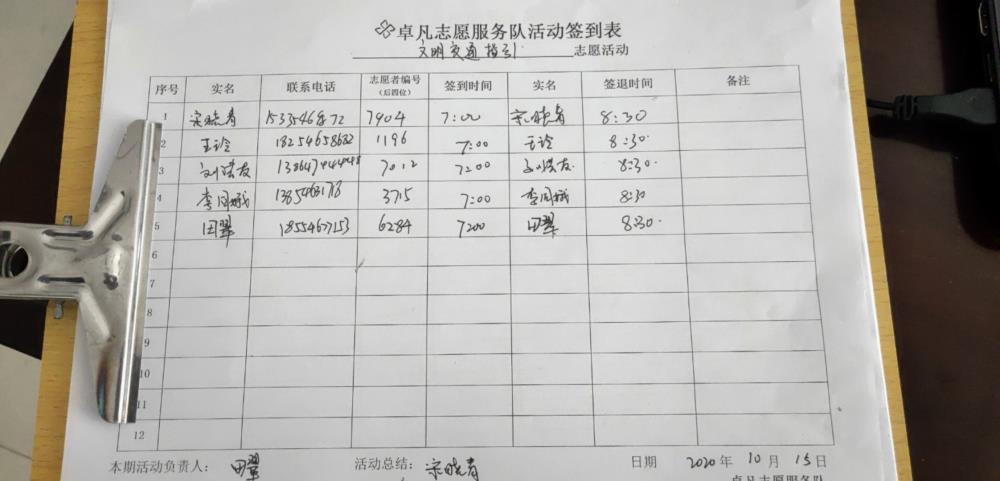 卓凡志愿服务队活动签到表
文明交通指引 志愿活动
序号 实名 联系电话 志愿者编号（后四位） 签到时间 实名 签退时间 备注
1 宋晓青 7904 7:00 宋晓青 8:30
2 王玲 18254658682 1196 7:00 王玲 8:30
3 刘洪友 7012 7:00 刘洪友 8:30
4 李同娥 3715 7:00 李同娥 8:30
5 田翠 18554677153 6284 7:00 田翠 8:30
6
7
8
9
10
11
12
本期活动负责人： 田翠 活动总结： 宋晓青 日期 2020 年 10 月 15 日
卓凡志愿服务队